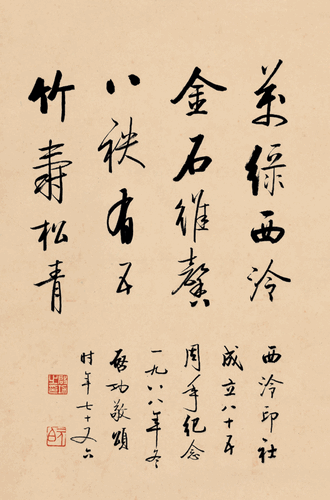 萬緑西泠
金石維馨
八袟有五
竹壽松青
西泠印社
成立八十五
周年紀念
一九八八年冬
啟功敬頌
时年七十又六